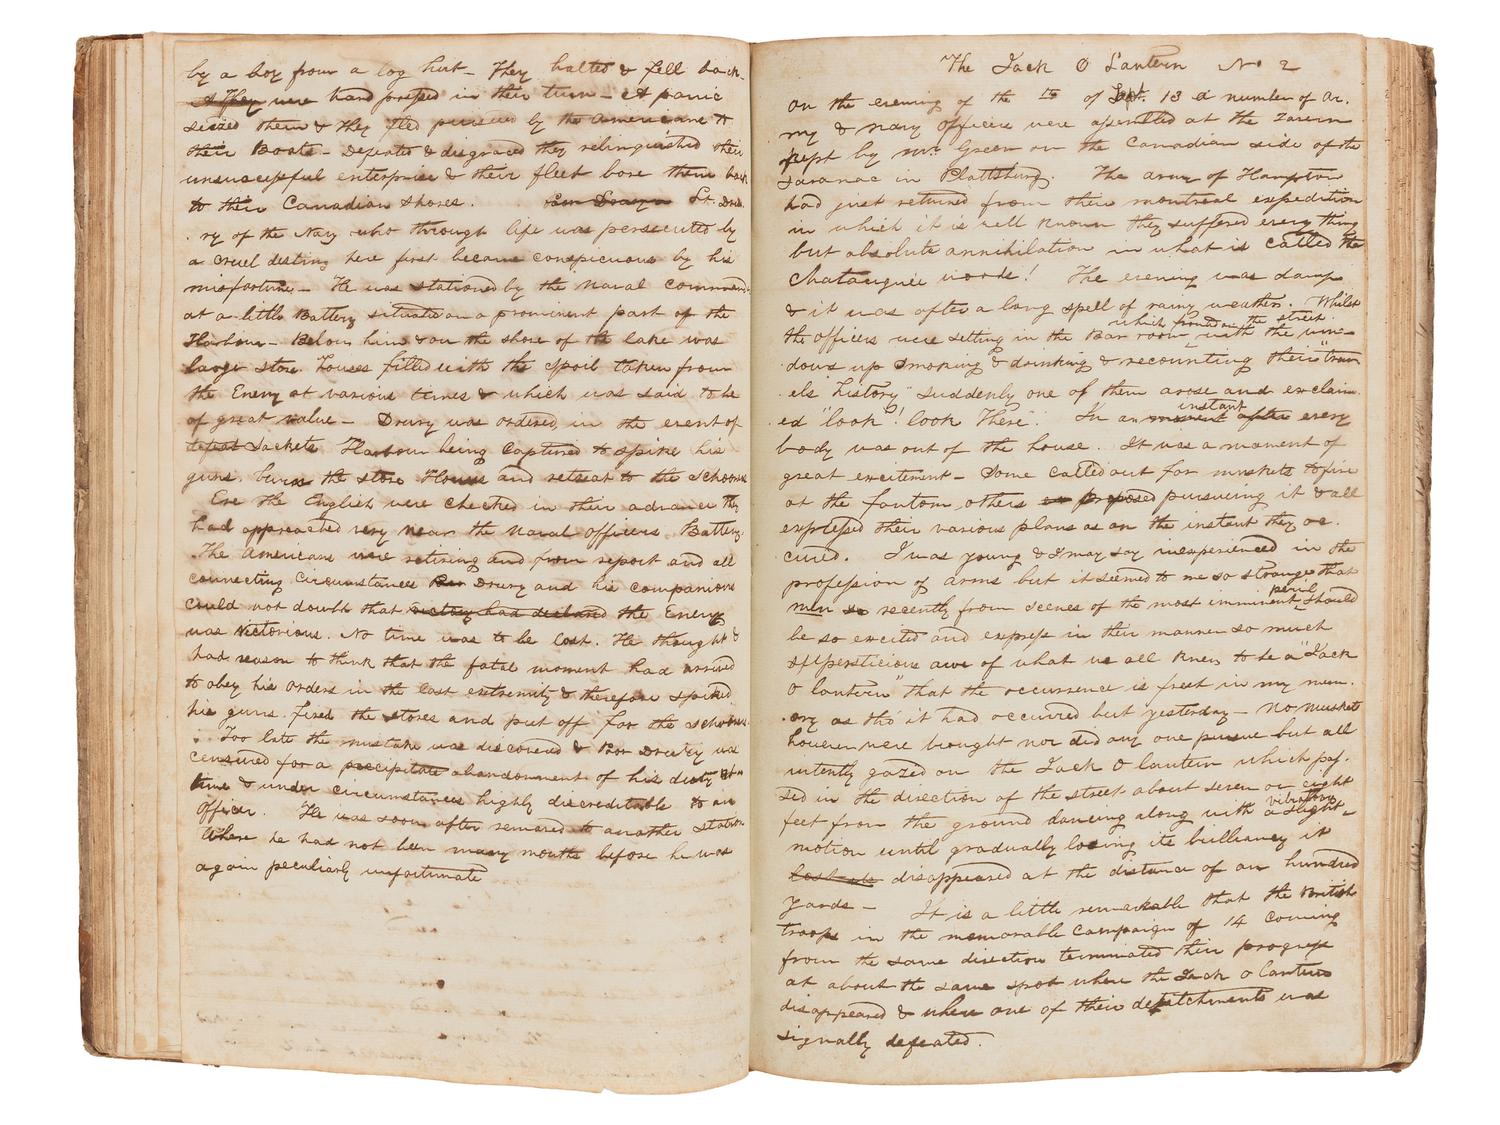 by a boy from a log hut_ They halted & fell back_
& They were hard pressed in their turn_ A panic
seized them & they fled pursued by the Americans to
their Boats_ Defeated & disgraced they relinquished their
unsuccessful enterprise & their fleet bore them back
to their Canadian shores. Lt. Dru.
.ry of the Navy who through life was persecuted by
a cruel destiny here first became conspicuous by his
misfortune_ He was stationed by the Naval Command.
at a little Battery situate on a prominent part of the
Harbour_ Below him & on the shore of the lake was
large store Houses filled with the spoil taken from
the Enemy at various times & which was said to be
of great value_ Drury was ordered in the event of
defeat Sackets Harbour being captured to spike his
guns, burn the store Houses and retreat to the Schooner
Ere the English were checked in their advance they
had approached very near the Naval officers Battery.
The Americans were retiring and from report and all
connecting circumstances Drury and his companions
could not doubt that victory had declared the Enemy
was victorious. No time was to be lost. He thought &
had reason to think that the fatal moment had arrived
to obey his orders in the last extremity & therefore spiked
his guns. fired the stores and put off for the schooner.
Too late the mistake was discovered & Drury was
censured for a precipitate abandonment of his duty at a
time & under circumstances highly discreditable to an
officer. He was soon after removed to another station
Where he had not been many months before he was
again peculiarly unfortunate
The Jack O Lantern No 2
On the evening of the of Sept. 13 a number of Ar.
my & Navy officers were assembled at the Tavern
kept by Mr. Green on the Canadian side of the
Saranac in Plattsburg. The army of Hampton
had just returned from their montreal expedition
in which it is well known they suffered every thing
but absolute annihilation in what is called the
Chataugueé woods! The evening was damp
& it was after a long spell of rainy weather. Whilst
which fronted on the street
the officers were setting in the Bar room with the win-
dows up smoking & drinking & recounting their "trav
els history" suddenly one of them arose and exclaim.
ed "look! look There". In an moment after every
instant
body was out of the house. It was a moment of
great excitement_ Some called out for muskets to fire
at the fantom others proposed pursuing it & all
expressed their various plans as on the instant they oc.
cured. I was young & I may say inexperienced in the
profession of arms but it seemed to me so strange that
peril
men so recently from scenes of the most imminent should
be so excited and express in their manner so much
superstitious awe of what we all knew to be a "Jack
O lantern" that the occurrence is fresh in my mem.
.ory as tho it had occurred but yesterday_ No musket
however were brought nor did any one pursue but all
intently gazed on the Jack O lantern which pas.
sed in the direction of the street about seven or eight
vibratory
feet from the ground dancing along with a slight_
motion until gradually losing its brilliancy it
disappeared at the distance of an hundred
yards_ It is a little remarkable that the British
troops in the memorable campaign of 14 coming
from the same direction terminated their progress
at about the same spot where the Jack o Lantern
disappeared & where one of their detatchments was
signally defeated.